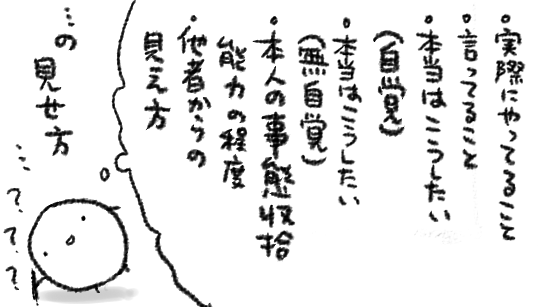 ・実際にやってること
・言ってること
・本当はこうしたい
(自覚)
・本当はこうしたい
(無自覚)
・本人の事態収拾
能力の程度
・他者からの
見え方
…の
見せ方
…
?
?
?